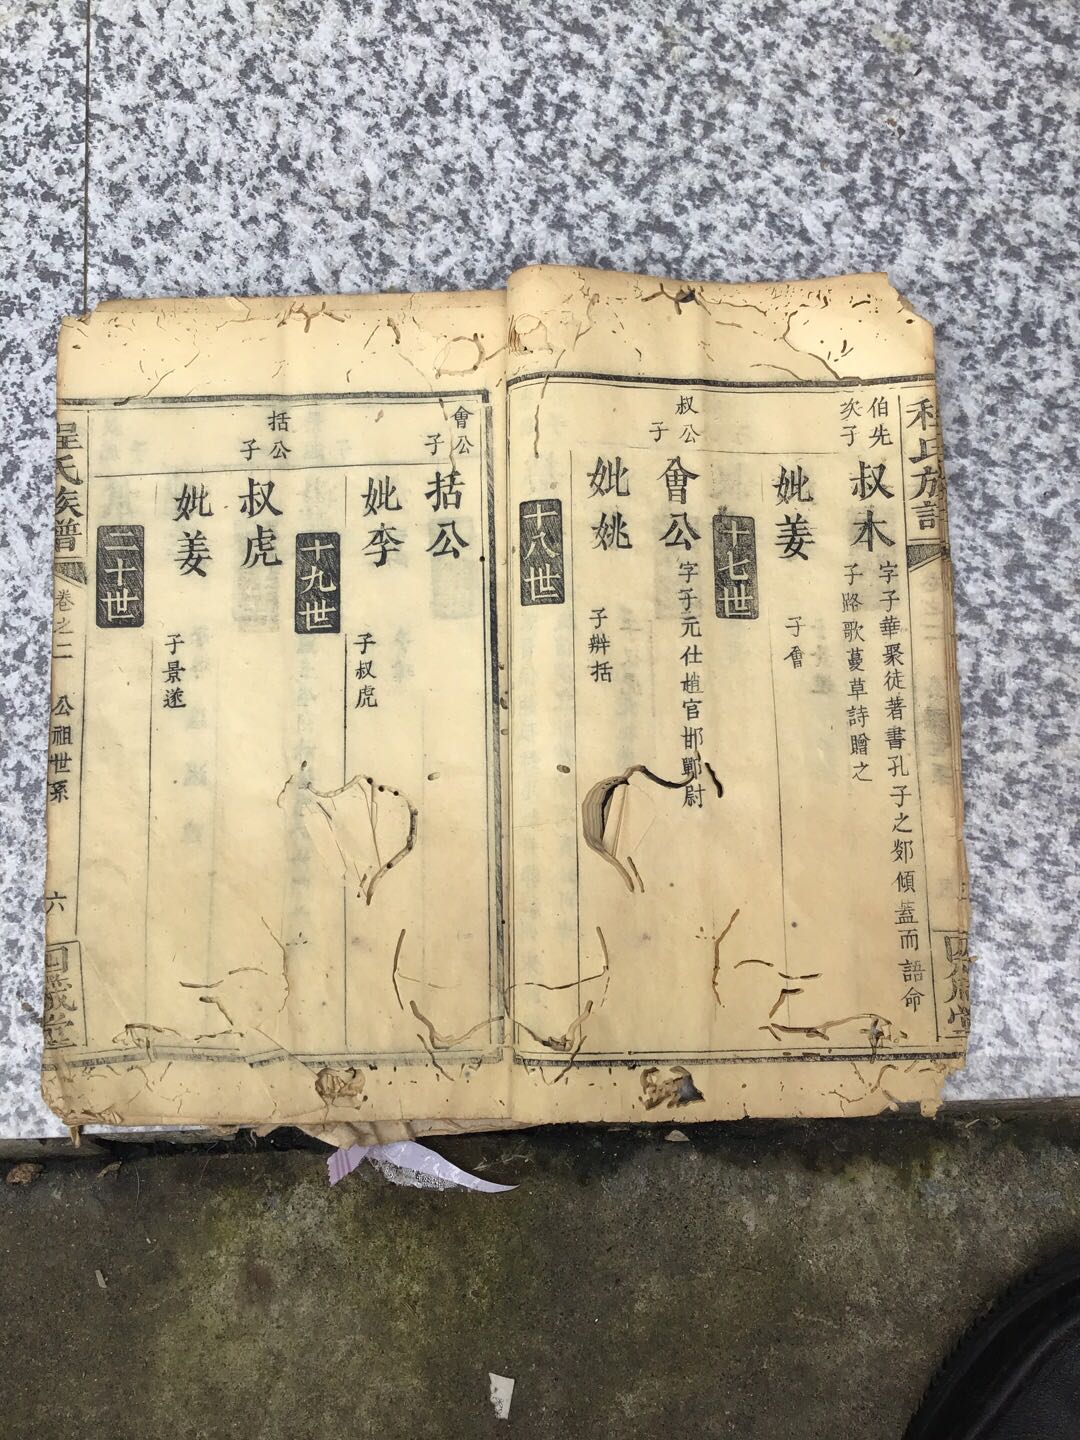 程氏族譜
伯先
次子
叔本
字子華聚徒著書孔子之郯傾蓋而語命
子路歌蔓草詩贈之
妣姜
子會
十七世
叔公
子
會公
字子元仕趙官邯鄲尉
妣姚
子辨括
十八世
會公
子
括公
妣李
子叔虎
十九世
括公
子
叔虎
妣姜
子景遂
二十世
程氏族譜
卷之二
公祖世系
六
四箴堂